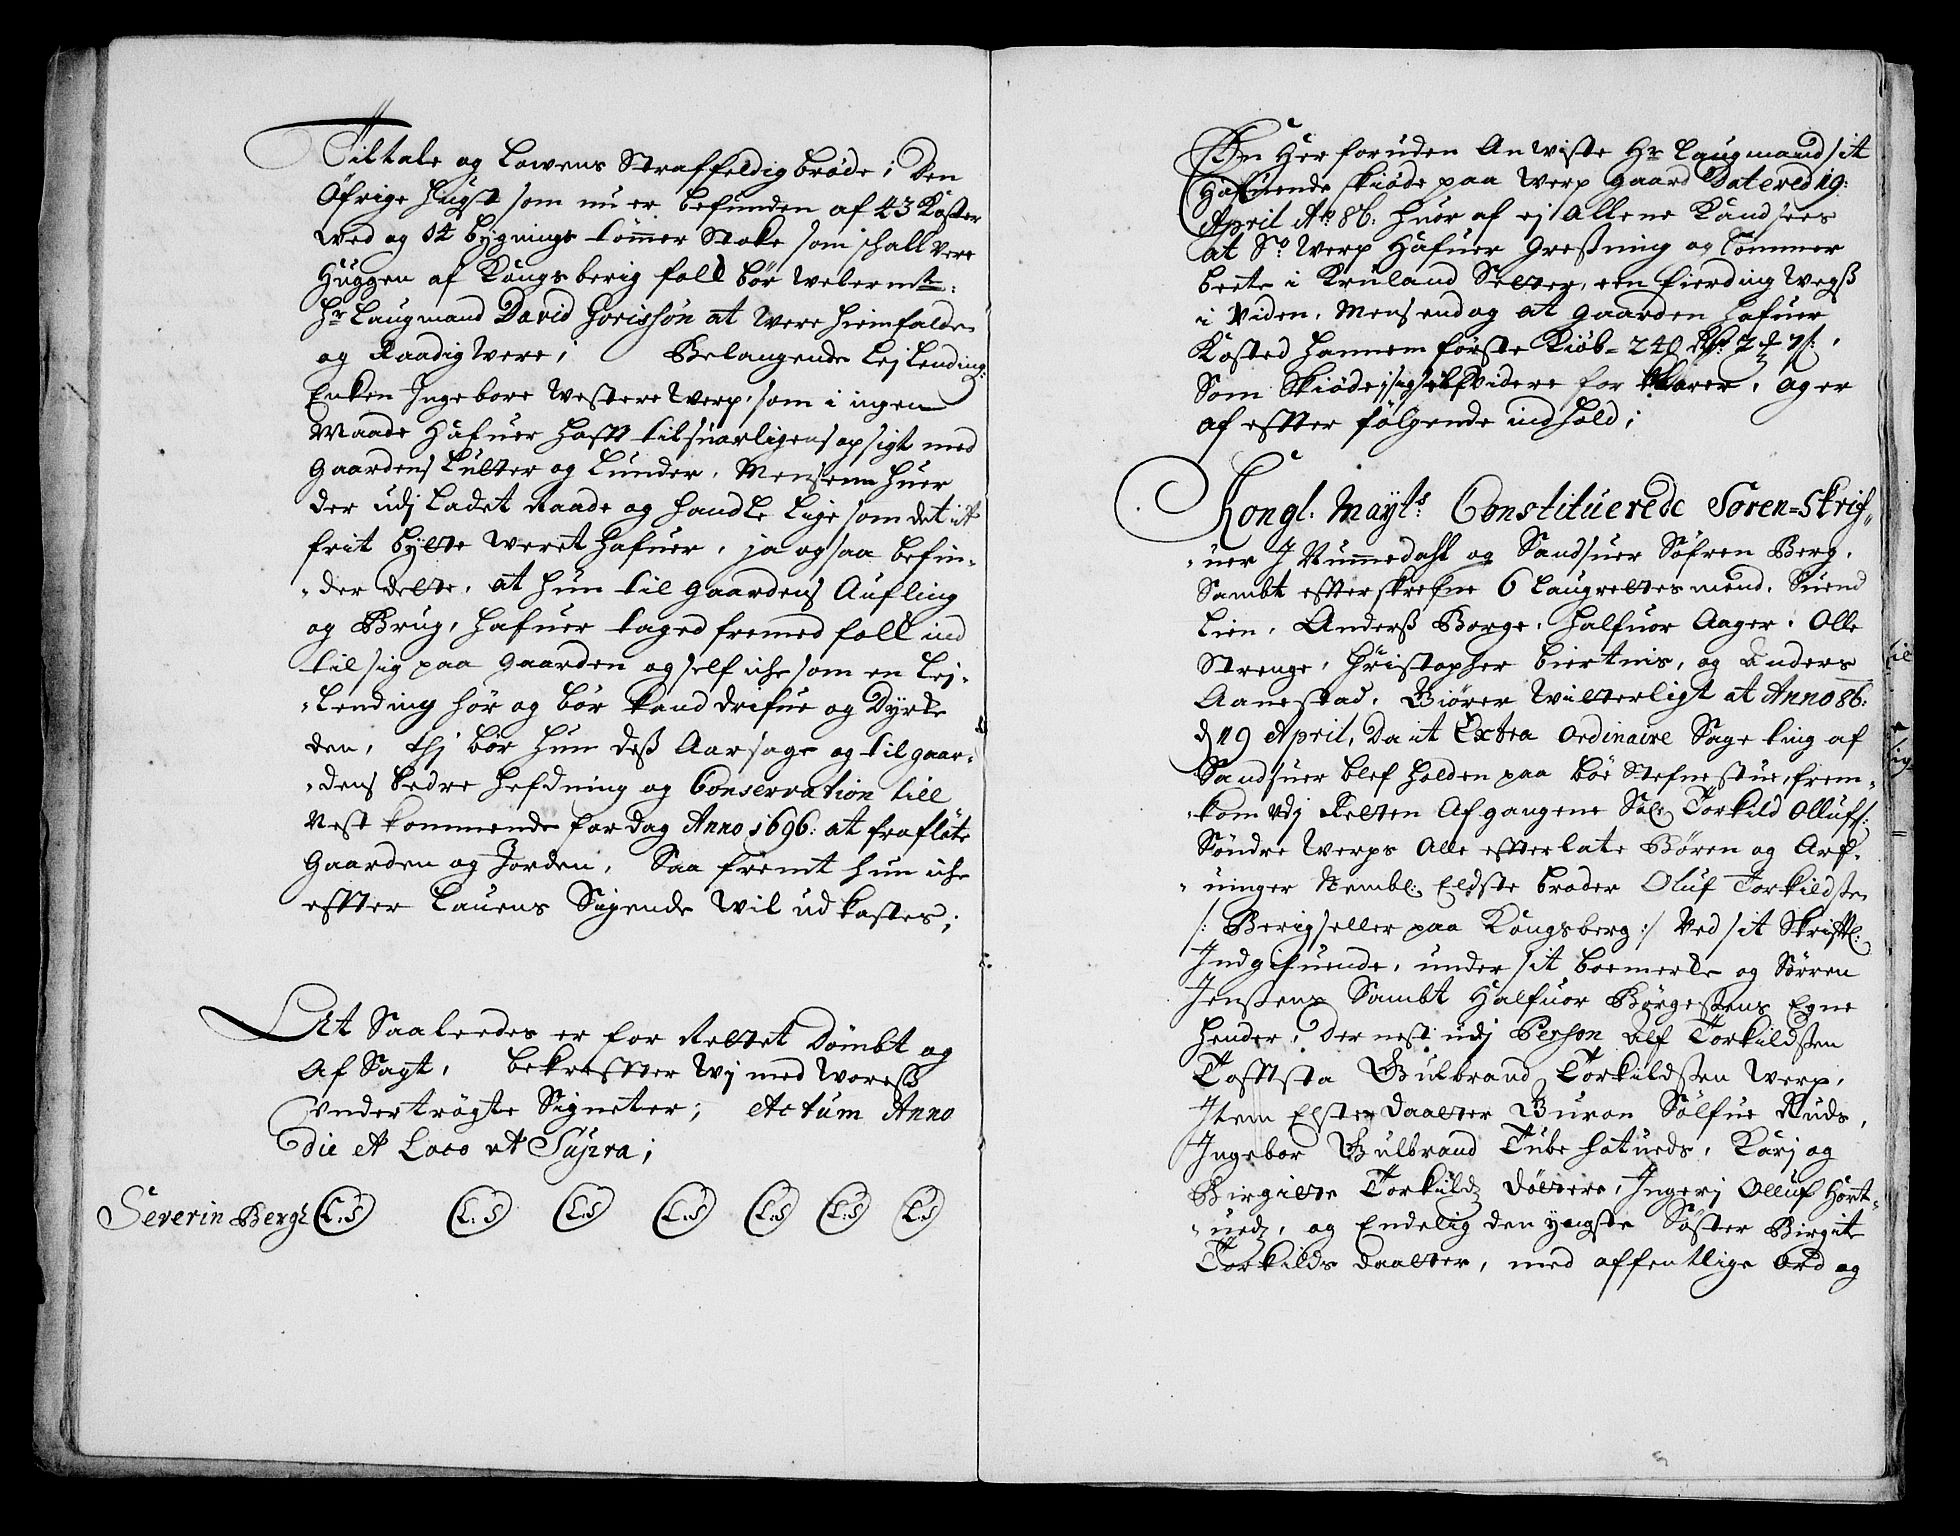 Tiltale og Lowens Straffeldig brøde; Den
Øfrige Hugst som nu er befunden af 43 Kaster
wed og 14 bygnings tømmer Stoke som schall vere
Huggen af Kongsberig folk bør welermte:
Hr Laugmand David Gorisson at were hiemfalden
og Raadig were; Belangende Leylending:
Enken Ingebore westere werp, som i ingen
Maade Hafuer hafft tilsuarligens opsigt med
Gaardens Lutter og Lunder, Mens enn huer
der udj Ladet raade og handle lige som det it
frit bytte weret hafuer, ja ogsaa befin-
-der dette, at hun til gaardens Aufling
og Brug, hafuer taged fremed folk ind
til sig paa gaarden og self iche som en Lej-
-lending hør og bør kand drifue og Dyrke
den, thj bør hun deß Aarsage og til gaar-
-dens bedre hefdning og Conservation till
Nest kommende fardag Anno 1696: at frafløte
Gaarden og Jorden, Saa fremt hun iche
effter Lauens Sigende wil udkastes;
At Saaleedes er for Retten Dømbt og
Af Sagt, bekreffter wj med woreß
Undertrøgte Signeter; Actum Anno
die et Loco ut Supra;
Severin Bergs L:S L:S L:S L:S L:S L:S L:S
Her foruden Anwiste Hr Laugmand sit
Hafuende skiøde paa werp gaard Datered 19:
April Ao 86: huor af ej Allene Kand sees
at So werp Hafuer Greßning og Sommer
beete i Kruland Setter, een fierding wegß
i viden, Mens endog at gaarden hafuer
Kosted hannem første Kiøb= 240 Rdr 2 7 s:
Som Skiøde sig self videre for klarer, og er
af effter følgende indhold;
Kongl: Mayts Constituerede Soren=Skrif-
-uer J Nummedahl og Sandsuer Søfren Berg,
Sambt efterskrefne 6 Laugrettes mend, Suend
Lien, Anderß Borge, Halfuor Aager, Olle
Strenge, Christopher biertnis, og Anders
Aanestad, Giører witterligt at Anno 86:
d 19 April, Da it Extra Ordinaire Sage ting af
Sandsuer blef holden paa bøe Stefnestue, frem-
-kom udj Retten Afgangene Sale Torkild Ollufs:
Søndre werps Alle efterlate Børen og Arf-
-uinger Nembl: Eldste broder Oluf Torkildsen
/: Berigseller paa Kongsberg:/ ved sit Skriftl:
Indgifuende, under sit boemerke og Sørren
Jenßens Sambt Halfuor Børgeßens Egne
hender, Der nest udj Person Alf Torkildßen
Tofftsta Gulbrand Torkildßen werp,
Item Elste daatter Guron Sølfue Ruds,
Ingebor Gulbrand Tubehatueds, Karj og
Birgitte Torkildz døttere, Ingerj Olluf Hørt-
-uedz, og Endelig den yngste Søster Birgite
Torkilds daatter, med offentlige Ord og